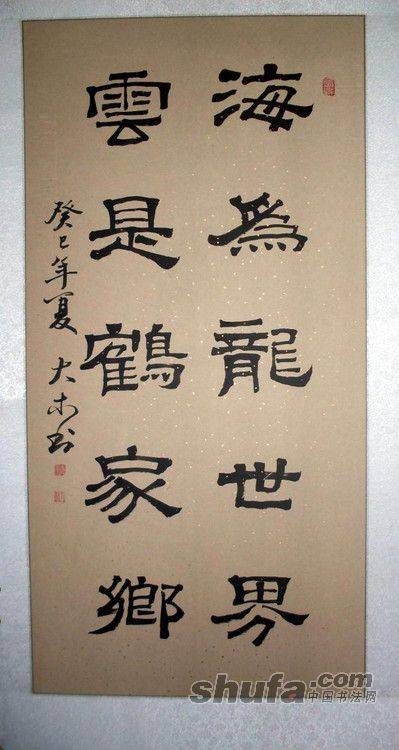 海為龍世界
雲是鶴家鄉
癸巳年夏 大木书
shufa.com
中国书法网